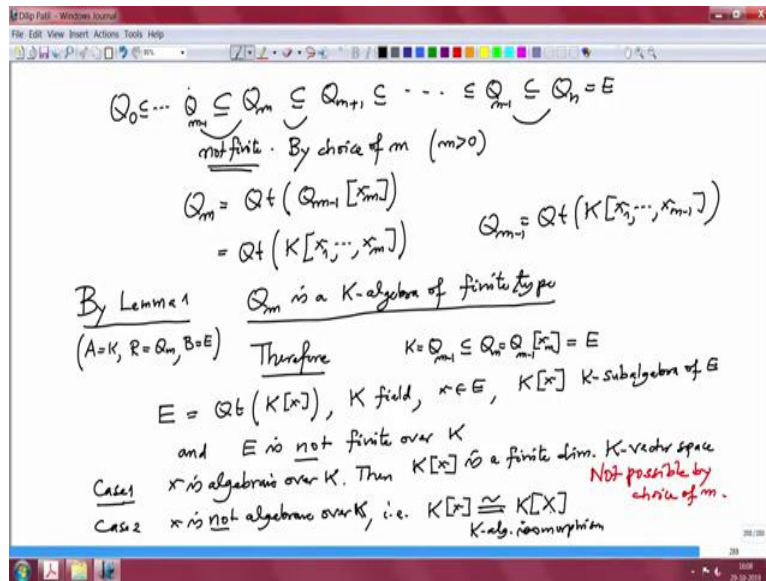 Dilip Patil - Windows Journal
File Edit View Insert Actions Tools Help
Q₀ ⊆ ··· Q_{m-1} ⊆ Q_m ⊆ Q_{m+1} ⊆ ··· ⊆ Q_{n-1} ⊆ Q_n = E
not finite. By choice of m (m>0)
Q_m = Qt(Q_{m-1}[x_m])
= Qt(K[x_1,···,x_m]) Q_{m-1} = Qt(K[x_1,···,x_{m-1}])
By Lemma 1 Q_m is a K-algebra of finite type
(A=K, R=Q_m, B=E) Therefore K=Q_{m-1} ⊆ Q_m = Q_{m-1}[x_m] = E
E = Qt(K[x]), K field, x∈E, K[x] K-subalgebra of E
and E is not finite over K
Case 1 x is algebraic over K. Then K[x] is a finite dim. K-vector space
Not possible by choice of m.
Case 2 x is not algebraic over K, i.e. K[x] ≅ K[X]
K-alg. isomorphism
288
16:08
29-10-2019